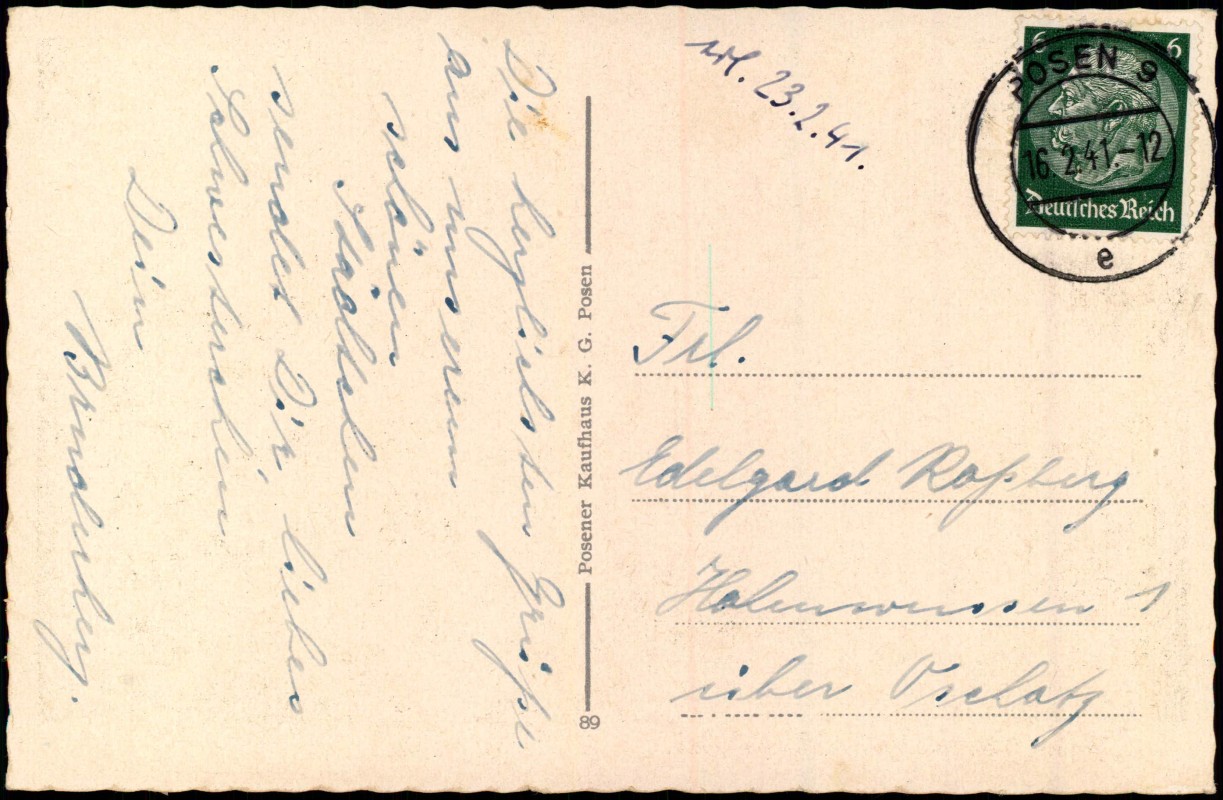 Die herzlichsten Grüße
aus unserem
schönen
Städtchen
sendet Dir, liebes
Schwesterchen
Dein
Bruderherz.
Posener Kaufhaus K. G. Posen
89
erl. 23.2.41.
6 6
Deutsches Reich
POSEN 9
16.2.41.-12
e
Frl.
Edelgard Roßberg
Hohenwussen 1
über Oschatz